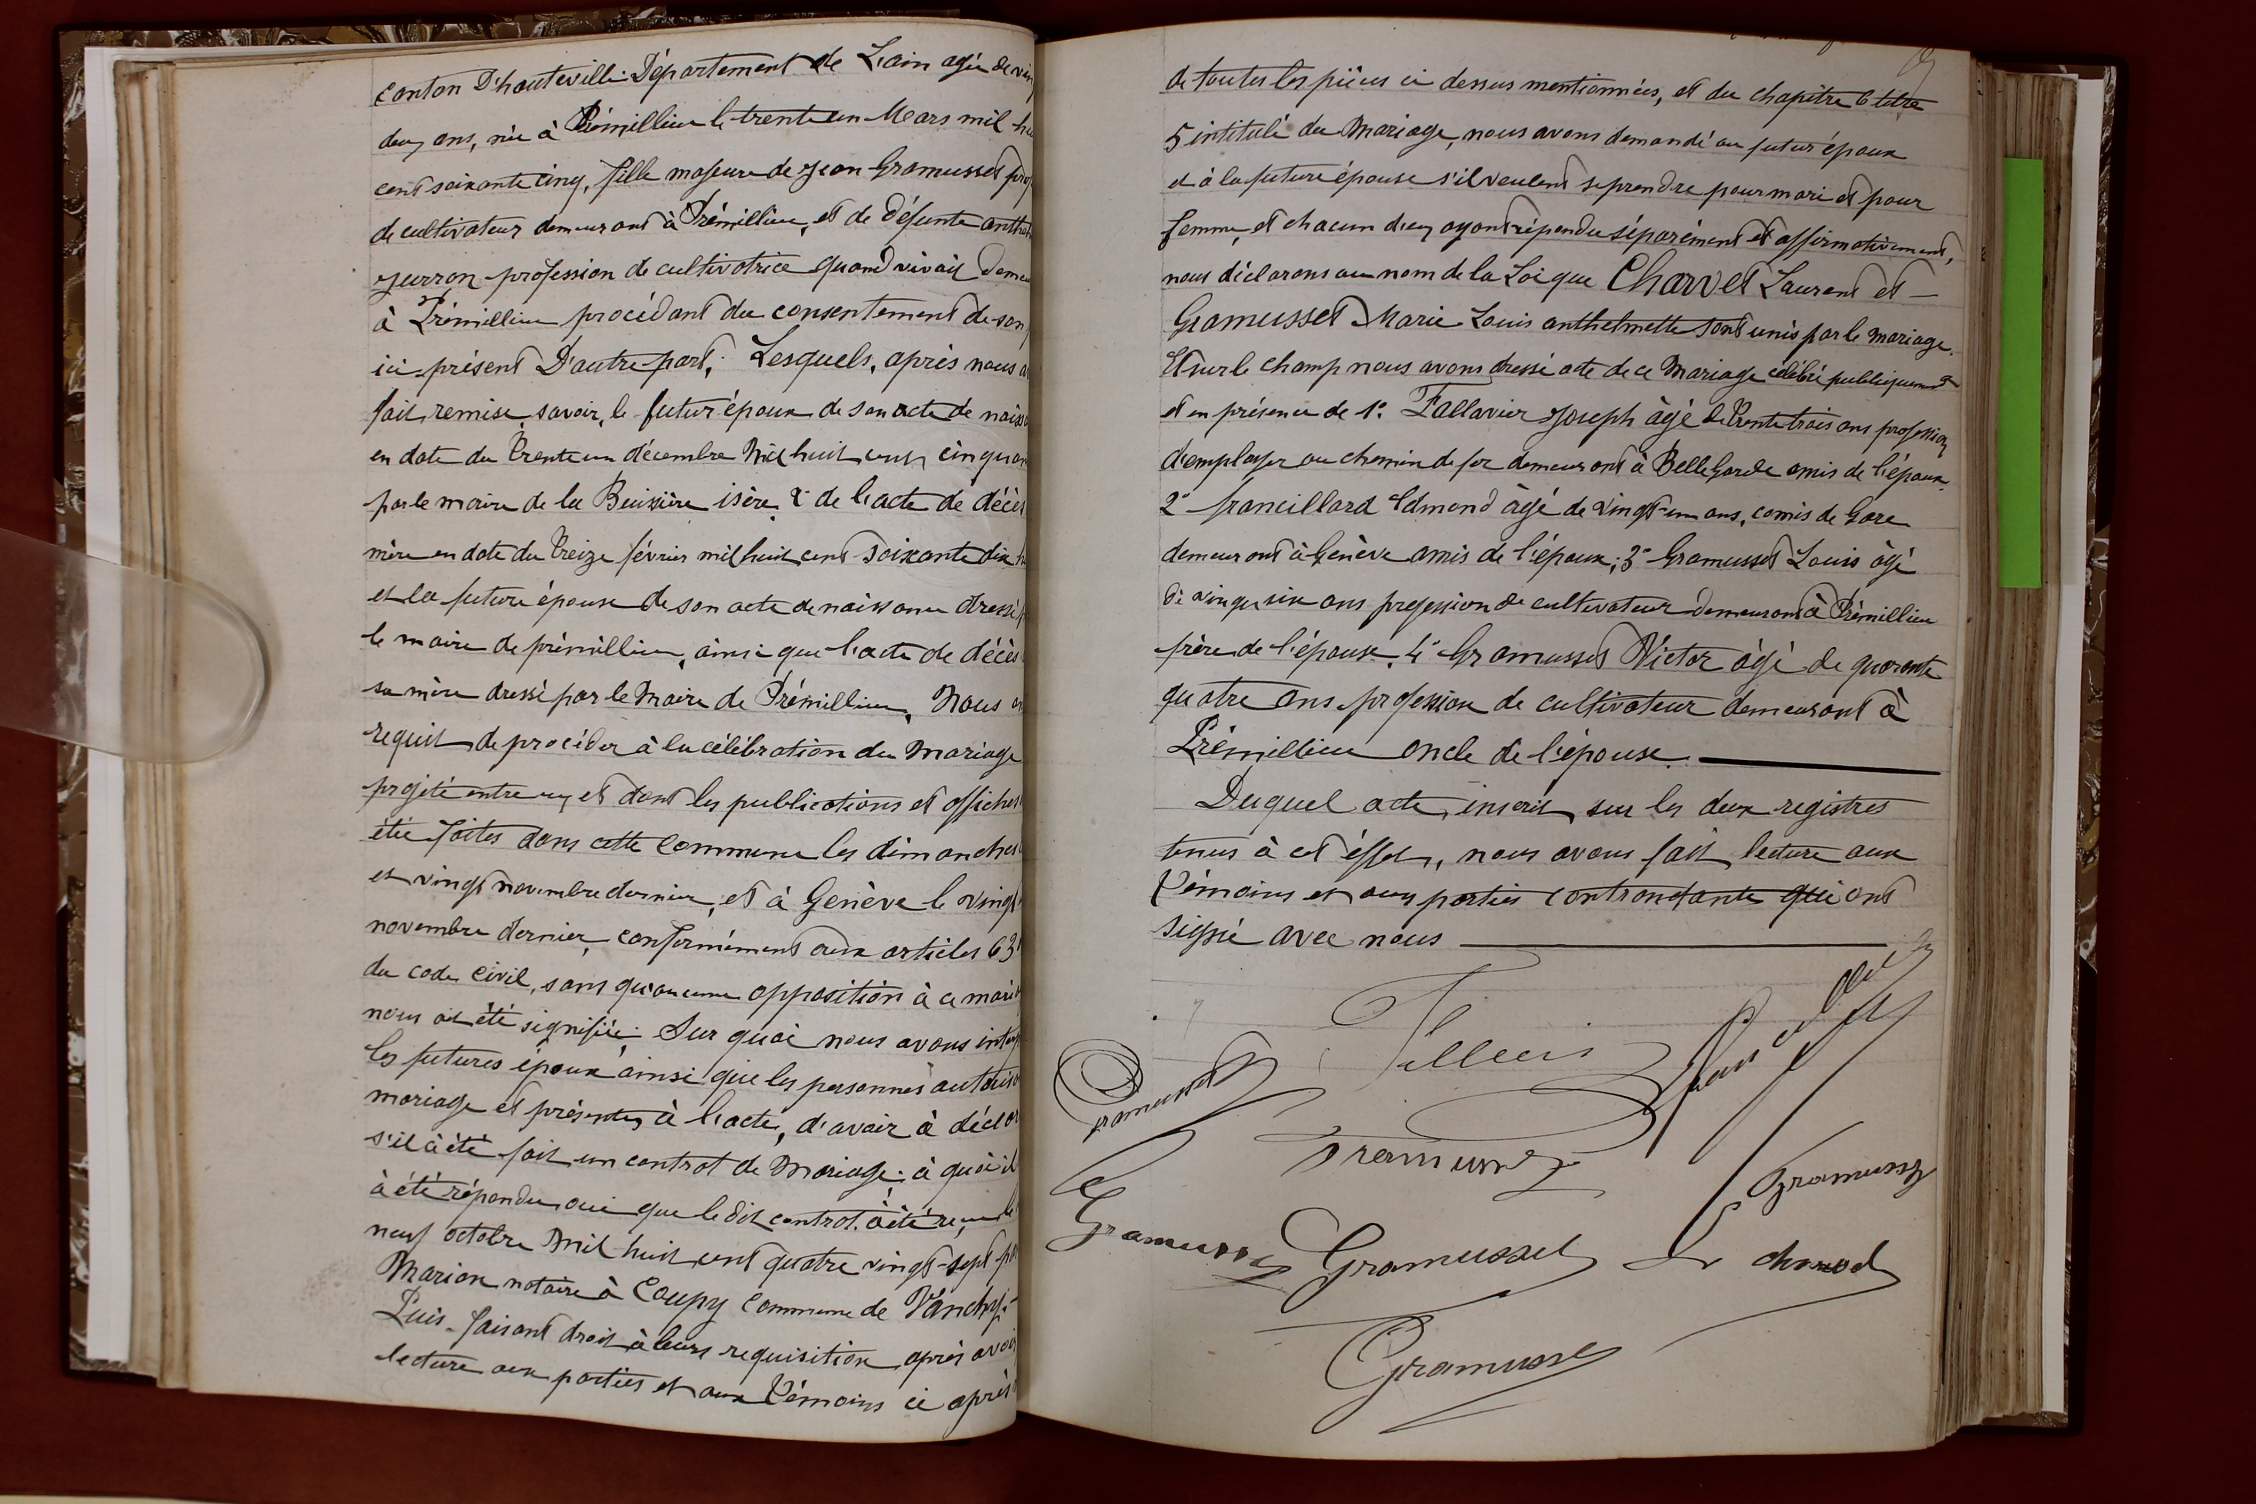 Canton D'hauteville Département de L'ain agée de vin
deux ans, née à Prémillieu le trente un Mars mil hui
cent soixante cinq, fille majeure de Jean Gramusset prof
de cultivateur demeurant à Prémillieu, et de défunte anthel
Juvron profession de cultivatrice quand vivait demeu
à Prémillieu procédant du consentement de son
ici présent D'autre part. Lesquels, après nous a
fait remise, savoir, le futur époux de son acte de naiss
en date du trente un décembre Mil huit cent cinquan
par le maire de la Buissière isère, & de l'acte de décès
mère en date du treize février mil huit cent soixante dix
et la future épouse de son acte de naissance dressé p
le maire de prémillieu, ainsi que l'acte de décès
sa mère dressé par le Maire de Prémillieu, Nous on
requit de procéder à la célébration du Mariage
projété entre eux et dont les publications et affiches
été faites dans cette commune les dimanches
et vingt novembre dernier, et à Genève le vingt
novembre dernier, conformément aux articles 63
du code civil, sans qu'aucune opposition à ce maria
nous ait été signifiée. Sur quoi nous avons interp
les futures époux ainsi que les personnes autoris
mariage et présentes à l'acte, d'avoir à déclar
s'il à été fait un contrat de Mariage; à quoi il
à été répondu oui que le dit contrat à été reçu le
neuf octobre Mil huit cent quatre vingt-sept par
Marion notaire à Coupy commune de Vanchy.
Puis faisant droit à leurs requisition après avoir
lecture aux parties et aux témoins ci après
de toutes les pièces ci dessus mentionnées, et du chapitre 6 titre
5 intitulé du Mariage, nous avons demandé au futur époux
et à la future épouse s'il veulent se prendre pour mari et pour
femme, et chacun d'eux ayant répondu séparément et affirmativement,
nous déclarons au nom de la Loi que Charvet Laurent et —
Gramusset Marie Louis anthelmette sont unis par le mariage.
Et sur le champ nous avons dressé acte de ce Mariage célébré publiquement
et en présence de 1° Fallavier Joseph âgé de trente trois ans profession
d'employer au chemin de fer demeurant à Bellegarde amis de l'époux.
2° francillard Edmond âgé de vingt-un ans, comis de Gare
demeurant à Genève amis de l'époux; 3° Gramusset Louis âgé
de vingt six ans profession de cultivateur demeurant à Prémillieu
frère de l'épouse, 4° Gramusset Victor âgé de quarante
quatre ans profession de cultivateur demeurant à
Prémillieu oncle de l'épouse.
Duquel acte, inscrit sur les deux registres
tenus à cet éffet, nous avons fait lecture aux
témoins et aux parties contractante qui ont
signé avec nous
Gramusset
Gramusset
Gramusset
Gramusset Gramusset L charvet
Gramusse